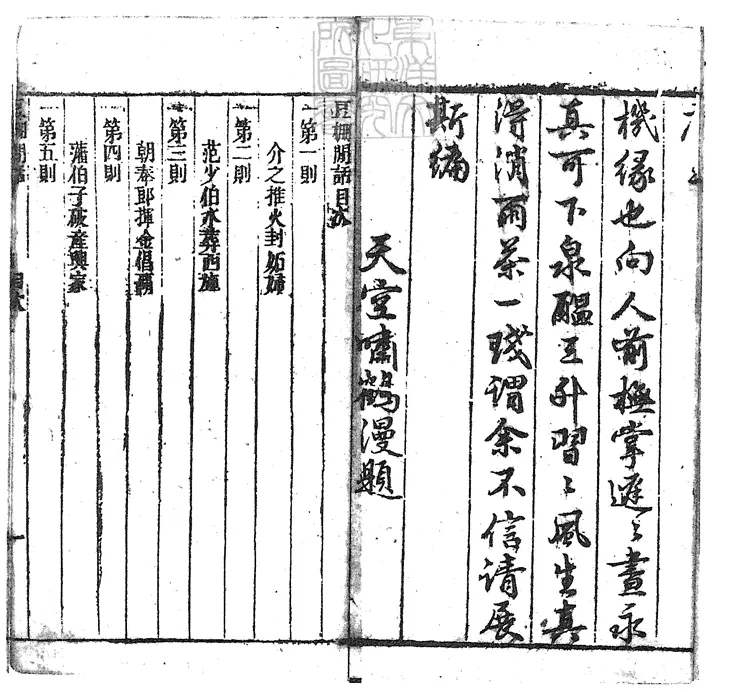 機緣也向人前撫掌遲〻晝永
真可下泉醞三升習〻風生真
得消雨茶一琖謂余不信請展
斯編
天空嘯鶴漫題
豆棚閒話目次
第一則
介之推火封妬婦
第二則
范少伯水葬西施
第三則
朝奉郎揮金倡霸
第四則
藩伯子破產興家
第五則